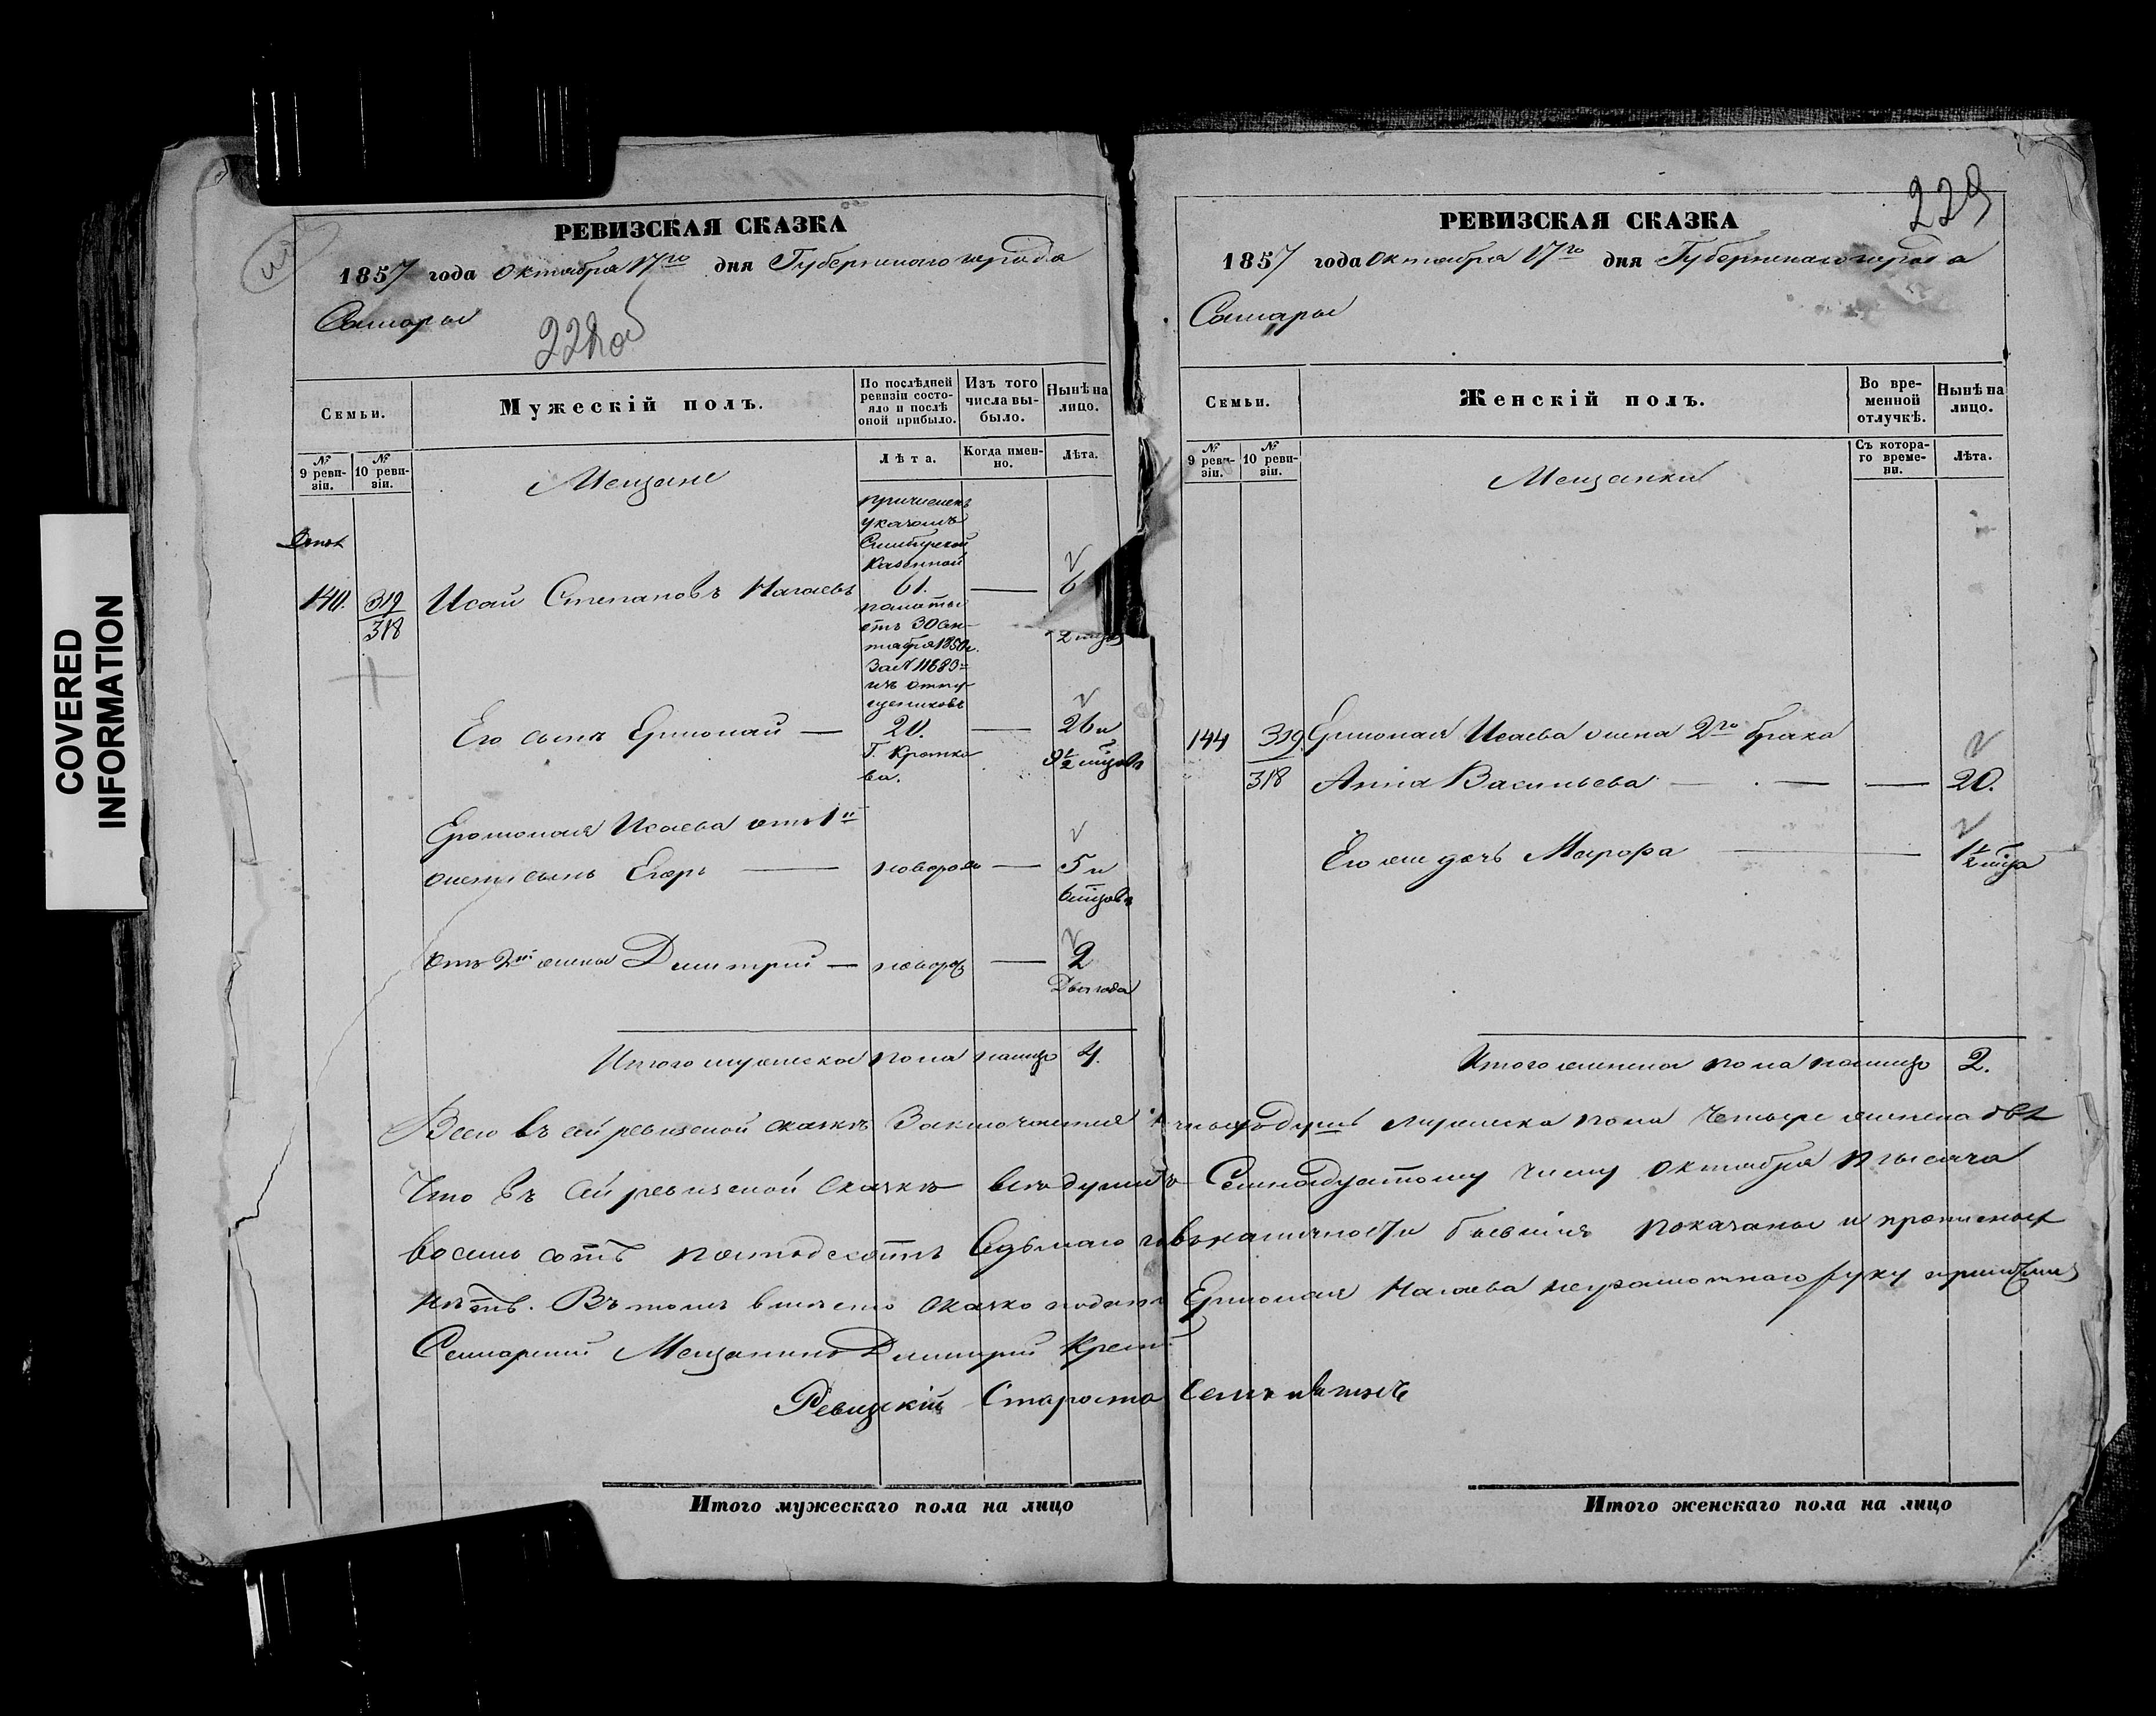 COVERED
INFORMATION
РЕВИЗСКАЯ СКАЗКА
1857 года Октября 17го дня Губернскаго города
Самары
228об
Семьи.
Мужескій полъ.
По послѣдней ревизіи состояло и послѣ оной прибыло.
Изъ того числа выбыло.
Нынѣ на лицо.
№ 9 ревизіи.
№ 10 ревизіи.
Мещане
Лѣта.
Когда именно.
Лѣта.
причисленъ
указомъ
Симбирской
Казенной
140. 319/318 Исай Степановъ Нагаевъ 61. — 6
палаты
отъ 30 Сен-
тября 1850г.
За №11689
изъ отпу-
щенниковъ
Его сынъ Ермолай — 20. — 26 и
Г. Кротко
ва.
9½ мцовъ
Ермолая Исаева отъ 1й
жены сынъ Егоръ — новорож — 5 и
6 мцовъ
отъ 2й жены Димитрій — новорож — 2
Два года
Итого мужеска пола налицо 4.
РЕВИЗСКАЯ СКАЗКА
229
1857 года Октября 17го дня Губернскаго города
Самары
Семьи.
Женскій полъ.
Во временной отлучкѣ.
Нынѣ на лицо.
№ 9 ревизіи.
№ 10 ревизіи.
Мещанки
Съ котораго времени.
Лѣта.
144 319 Ермолая Исаева жена 2го брака
318 Анна Васильева — — 20.
Его же дочь Марфа — 1½ мца
Итого женска пола налицо 2.
Всего въ сей ревизской сказкѣ Заключается душъ мужеска пола Четыре женска двѣ
Что въ сей ревизской Сказкѣ всѣ души къ Семнадцатому числу Октября тысяча
восемь сотъ пятьдесятъ Седьмаго въ наличности бывшія показаны и прописныхъ
нѣтъ. Въ томъ вмѣсто Ермолая Нагаева неграмотнаго руку приложилъ
Самарскій Мещанинъ Димитрій
Ревизскій Староста
Итого мужескаго пола на лицо
Итого женскаго пола на лицо